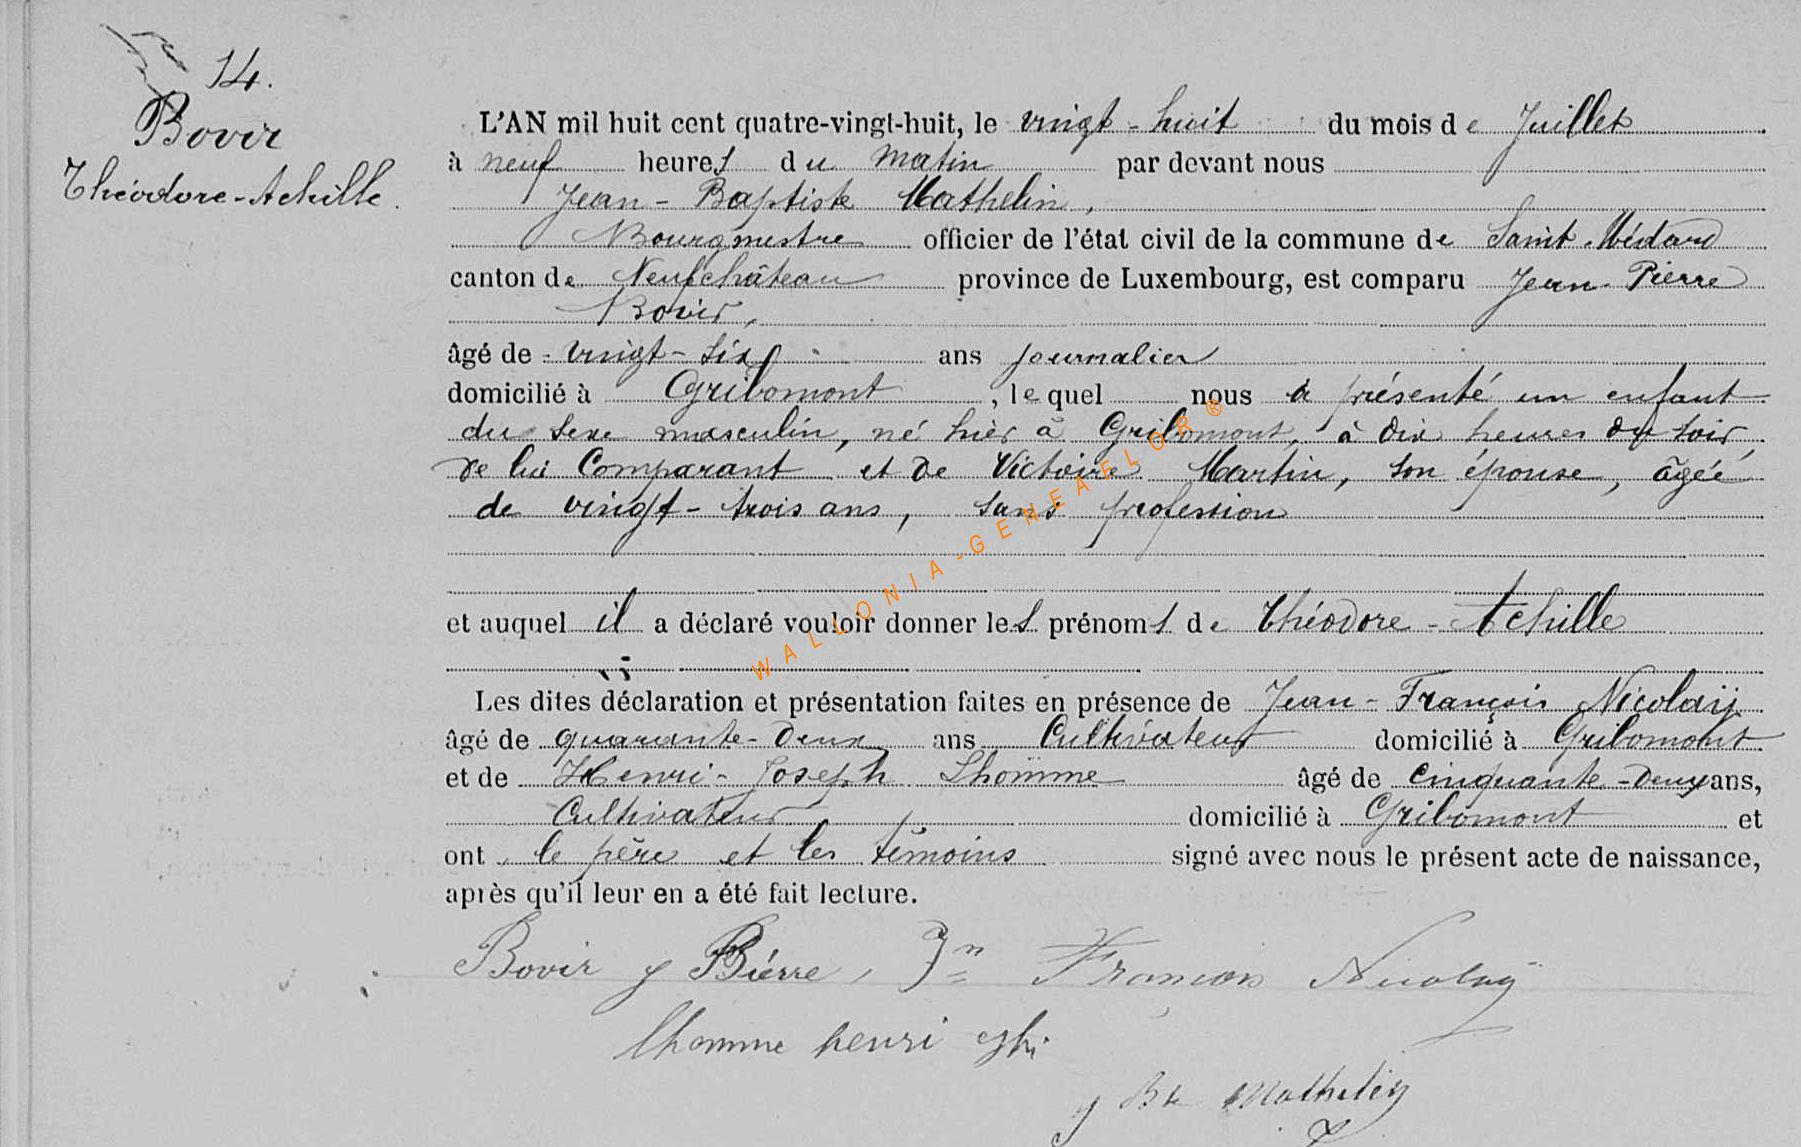 14.
Bovir
Théodore-Achille.
L'AN mil huit cent quatre-vingt-huit, le vingt-huit du mois de Juillet
à neuf heures du matin par devant nous
Jean-Baptiste Mathelin,
Bourgmestre officier de l'état civil de la commune de Saint-Médard
canton de Neufchâteau province de Luxembourg, est comparu Jean-Pierre
Bovir,
âgé de vingt-six ans journalier
domicilié à Gribomont, lequel nous a présenté un enfant
du sexe masculin, né hier à Gribomont, à dix heures du soir,
de lui Comparant et de Victoire Martin, son épouse, âgée
de vingt-trois ans, sans profession
et auquel il a déclaré vouloir donner les prénoms de Théodore-Achille
Les dites déclaration et présentation faites en présence de Jean-François Nicolaÿ
âgé de quarante-deux ans Cultivateur domicilié à Gribomont
et de Henri-Joseph Lhomme âgé de cinquante-deux ans,
Cultivateur domicilié à Gribomont et
ont le père et les témoins signé avec nous le présent acte de naissance,
après qu'il leur en a été fait lecture.
Bovir J Pierre, Jn François Nicolaÿ
lhomme henri
J Bte Mathelin
WALLONIA-GENEAFLOR ®